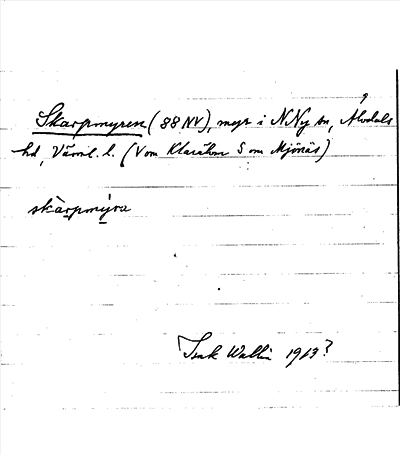 Skarpmyren (88 NV), myr i N Ny sn, Älvdals
hd, Värml. l. (V om Klarälven S om Mjönäs)
skàrpmýra
Isak Wallin 1913?